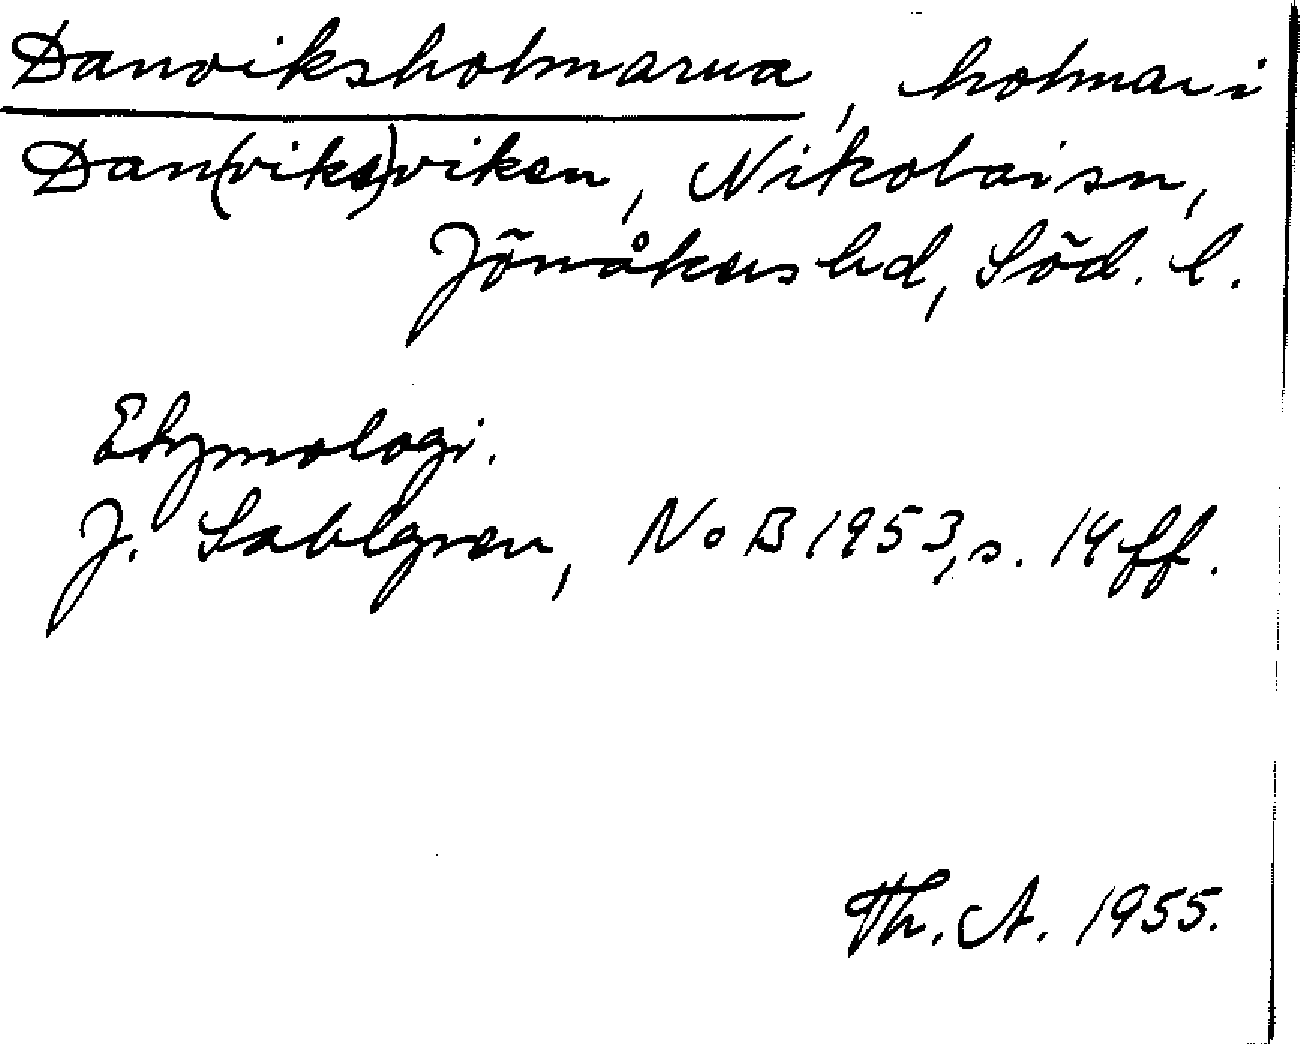 Danviksholmarna, holmar i
Dan(viks)viken, Nikolai sn,
Jönåkers hd, Söd. l.
Etymologi.
J. Sahlgren, NoB 1953, s. 14 ff.
Th. A. 1955.